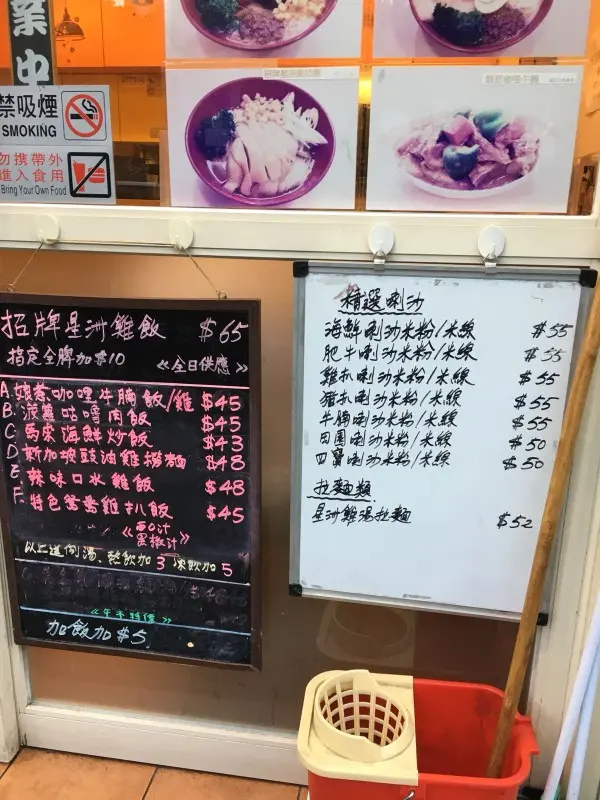 業中
禁吸煙
SMOKING
勿攜帶外
進入食用
Bring Your Own Food
招牌星洲雞飯 $65
指定全髀加$10 《全日供應》
A. 娘惹咖哩牛腩飯/雞 $45
B. 菠蘿咕嚕肉飯 $45
C. 馬來海鮮炒飯 $43
D. 新加坡豉油雞撈麵 $48
E. 辣味口水雞飯 $48
F. 特色鴛鴦雞扒飯 $45
《西口汁
黑椒汁》
以上送例湯、熱飲加3 凍飲加5
《午市特價》
加飯加$5
精選喇沙
海鮮喇沙米粉/米線 $55
肥牛喇沙米粉/米線 $55
雞扒喇沙米粉/米線 $55
豬扒喇沙米粉/米線 $55
牛腩喇沙米粉/米線 $55
田園喇沙米粉/米線 $50
四寶喇沙米粉/米線 $50
拉麵類
星洲雞湯拉麵 $52